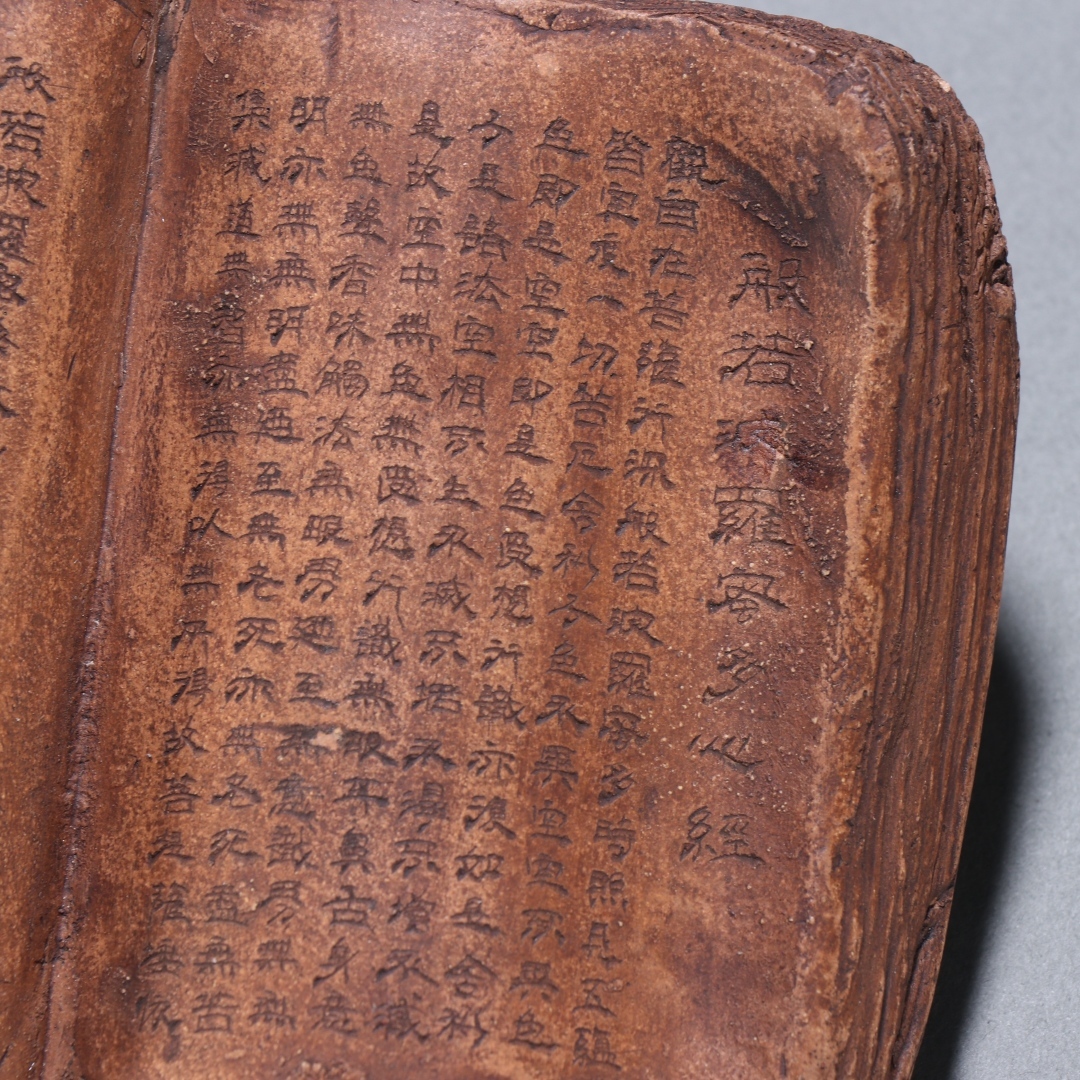 般若波羅蜜多心經
觀自在菩薩行深般若波羅蜜多時照見五蘊
皆空度一切苦厄舍利子色不異空空不異色
色即是空空即是色受想行識亦復如是舍利
子是諸法空相不生不滅不垢不淨不增不減
是故空中無色無受想行識無眼耳鼻舌身意
無色聲香味觸法無眼界乃至無意識界無無
明亦無無明盡乃至無老死亦無老死盡無苦
集滅道無智亦無得以無所得故菩提薩埵依
般若波羅蜜多